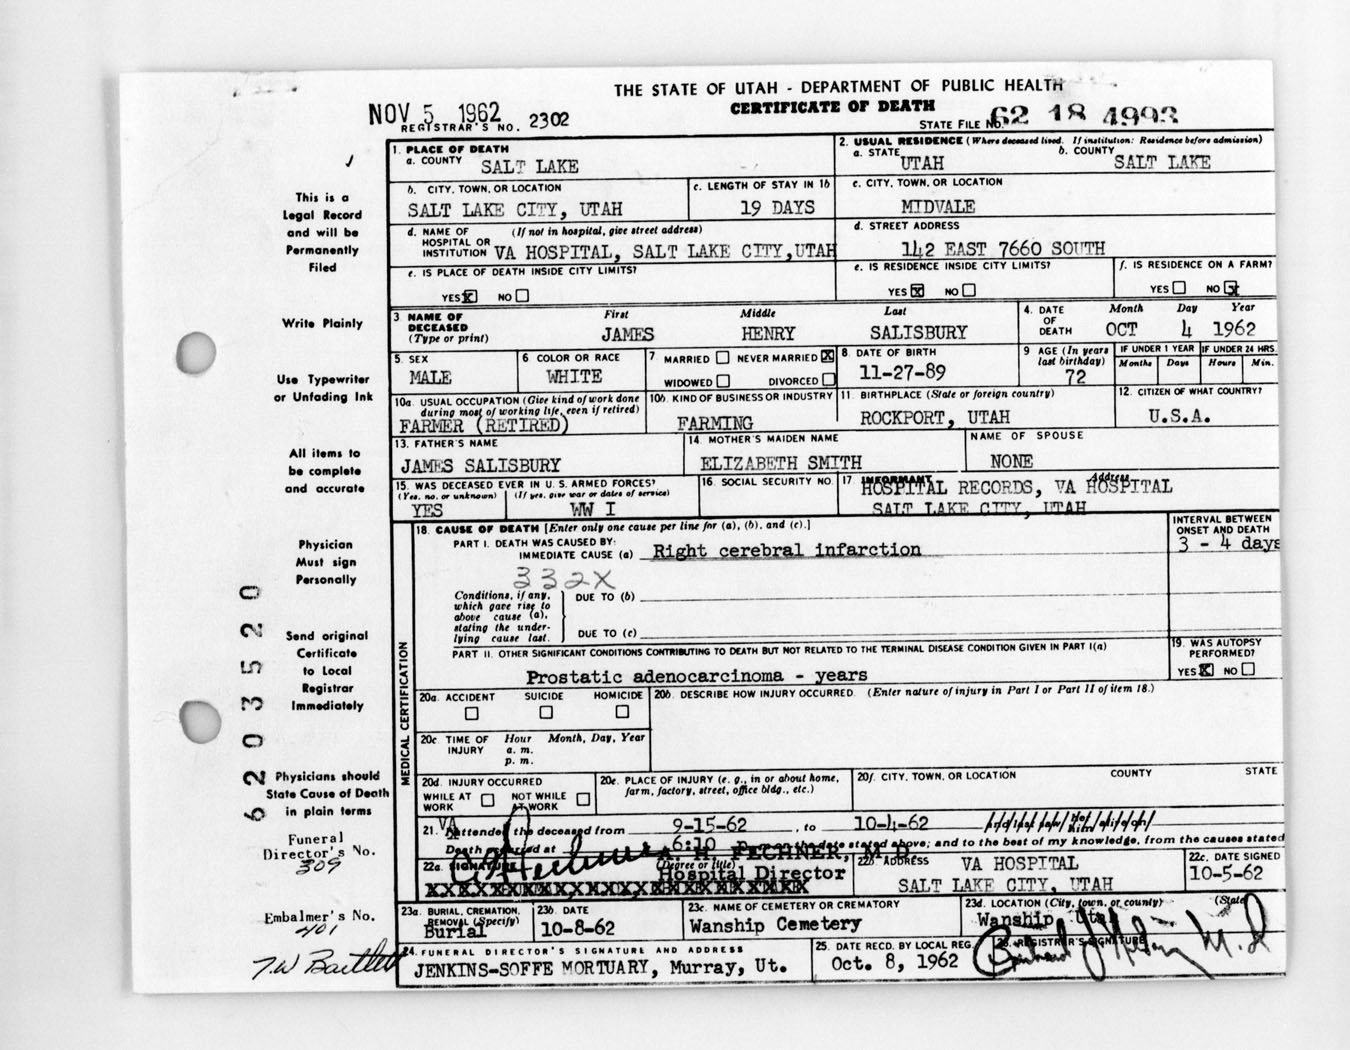 THE STATE OF UTAH - DEPARTMENT OF PUBLIC HEALTH
CERTIFICATE OF DEATH
NOV 5 1962
REGISTRAR'S NO. 2302
STATE FILE NO. 62 18 4993
1. PLACE OF DEATH
a. COUNTY SALT LAKE
2. USUAL RESIDENCE (Where deceased lived. If institution: Residence before admission)
a. STATE UTAH b. COUNTY SALT LAKE
b. CITY, TOWN, OR LOCATION
SALT LAKE CITY, UTAH
c. LENGTH OF STAY IN 1b
19 DAYS
c. CITY, TOWN, OR LOCATION
MIDVALE
d. NAME OF HOSPITAL OR INSTITUTION (If not in hospital, give street address)
VA HOSPITAL, SALT LAKE CITY, UTAH
d. STREET ADDRESS
142 EAST 7660 SOUTH
e. IS PLACE OF DEATH INSIDE CITY LIMITS?
YES X NO
e. IS RESIDENCE INSIDE CITY LIMITS?
YES X NO
f. IS RESIDENCE ON A FARM?
YES NO X
3. NAME OF DECEASED (Type or print)
First Middle Last
JAMES HENRY SALISBURY
4. DATE OF DEATH
Month Day Year
OCT 4 1962
5. SEX
MALE
6 COLOR OR RACE
WHITE
7 MARRIED NEVER MARRIED X
WIDOWED DIVORCED
8. DATE OF BIRTH
11-27-89
9 AGE (In years last birthday)
72
IF UNDER 1 YEAR
Months Days
IF UNDER 24 HRS.
Hours Min.
10a. USUAL OCCUPATION (Give kind of work done during most of working life, even if retired)
FARMER (RETIRED)
10b. KIND OF BUSINESS OR INDUSTRY
FARMING
11. BIRTHPLACE (State or foreign country)
ROCKPORT, UTAH
12. CITIZEN OF WHAT COUNTRY?
U.S.A.
13. FATHER'S NAME
JAMES SALISBURY
14. MOTHER'S MAIDEN NAME
ELIZABETH SMITH
NAME OF SPOUSE
NONE
15. WAS DECEASED EVER IN U. S. ARMED FORCES?
(Yes, no, or unknown) (If yes, give war or dates of service)
YES WW I
16. SOCIAL SECURITY NO.
17 INFORMANT Address
HOSPITAL RECORDS, VA HOSPITAL
SALT LAKE CITY, UTAH
MEDICAL CERTIFICATION
18. CAUSE OF DEATH [Enter only one cause per line for (a), (b), and (c).]
PART I. DEATH WAS CAUSED BY:
IMMEDIATE CAUSE (a) Right cerebral infarction
INTERVAL BETWEEN ONSET AND DEATH
3 - 4 days
332X
Conditions, if any, which gave rise to above cause (a), stating the underlying cause last.
DUE TO (b)
DUE TO (c)
PART II. OTHER SIGNIFICANT CONDITIONS CONTRIBUTING TO DEATH BUT NOT RELATED TO THE TERMINAL DISEASE CONDITION GIVEN IN PART I(a)
Prostatic adenocarcinoma - years
19. WAS AUTOPSY PERFORMED?
YES X NO
20a. ACCIDENT SUICIDE HOMICIDE
20b. DESCRIBE HOW INJURY OCCURRED. (Enter nature of injury in Part I or Part II of item 18.)
20c. TIME OF INJURY
Hour Month, Day, Year
a. m.
p. m.
20d. INJURY OCCURRED
WHILE AT WORK NOT WHILE AT WORK
20e. PLACE OF INJURY (e. g., in or about home, farm, factory, street, office bldg., etc.)
20f. CITY, TOWN, OR LOCATION COUNTY STATE
21. VA attended the deceased from 9-15-62, to 10-4-62
Death occurred at 6:10 p. m. on the date stated above; and to the best of my knowledge, from the causes stated
22a. SIGNATURE (Degree or title)
A. H. FECHNER, M D
Hospital Director
22b ADDRESS
VA HOSPITAL
SALT LAKE CITY, UTAH
22c. DATE SIGNED
10-5-62
23a. BURIAL, CREMATION, REMOVAL (Specify)
Burial
23b. DATE
10-8-62
23c. NAME OF CEMETERY OR CREMATORY
Wanship Cemetery
23d. LOCATION (City, town, or county) (State)
Wanship
24. FUNERAL DIRECTOR'S SIGNATURE AND ADDRESS
JENKINS-SOFFE MORTUARY, Murray, Ut.
25. DATE RECD. BY LOCAL REG.
Oct. 8, 1962
26. REGISTRAR'S SIGNATURE
This is a
Legal Record
and will be
Permanently
Filed
Write Plainly
Use Typewriter
or Unfading Ink
All items to
be complete
and accurate
Physician
Must sign
Personally
Send original
Certificate
to Local
Registrar
Immediately
Physicians should
State Cause of Death
in plain terms
Funeral
Director's No.
309
Embalmer's No.
401
T.W Bartlett
62 035 20